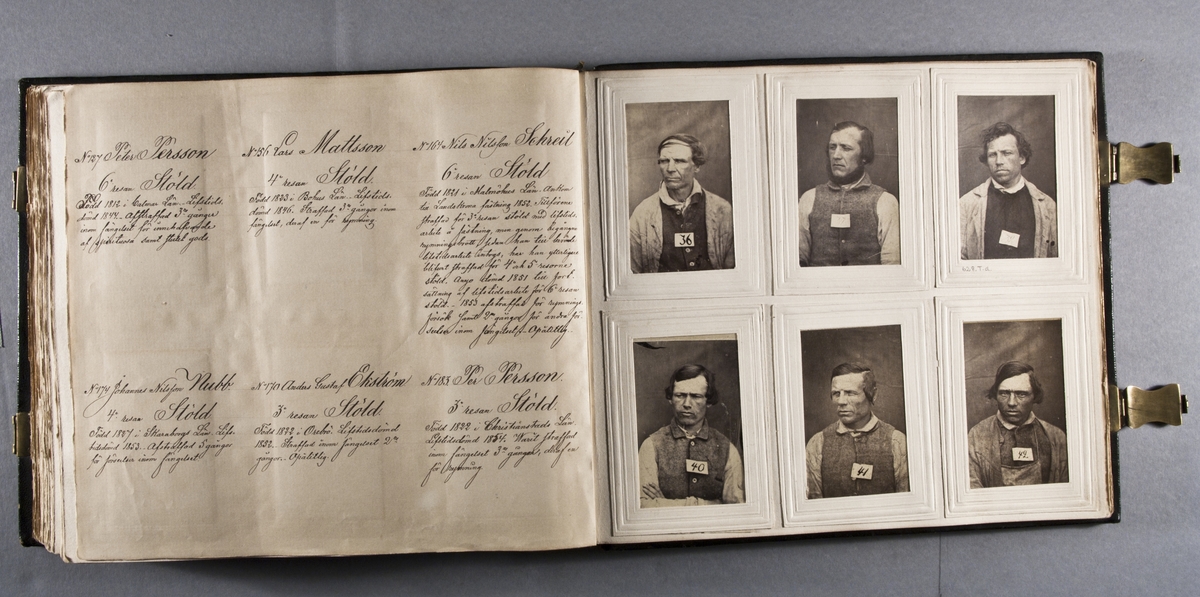 Nº137 Peter Persson
6e resan Stöld.
Född 1812 i Calmar Län. Lifstids-
dömd 1844. Afstraffad 3e gånger
inom fängelset för innehafvande
af samt stulet gods
Nº156 Lars Mattsson
4e resan Stöld.
Född 1813 i Bohus Län. Lifstids-
dömd 1846. Straffad 3e gånger inom
fängelset, deraf en för rymning
Nº164 Nils Nilsson Schreil
6e resan Stöld
Född 1821 i Malmöhus Län. Ankom
fästning 1852. Tillförene
straffad för 3e resan stöld med lifstids-
arbete å fästning, men genom begånget
rymningsbrott, sedan han till
lifstidsarbete intogs, har han ytterligare
blifvit straffad för 4e och 5e resorna
stöld. Anyo dömd 1851 till fort-
sättning af lifstidsarbete för 6e resan
stöld. 1853 afstraffad för rymnings-
försök samt 2ne gånger för andra för-
seelser inom fängelset. Opålitlig.
Nº174 Johannes Nilsson Nubb.
4e resan Stöld.
Född 1827 i Skaraborgs Län. Lifs-
tidsdömd 1853. Afstraffad 3 gånger
för förseelser inom fängelset.
Anders Gustaf Ekström
3e resan Stöld.
Född 1822 i Örebro. Lifstidsdömd
1852. Straffad inom fängelset 2ne
gånger. Opålitlig.
Nº183 Per Persson.
3e resan Stöld.
Född 1822 i Christianstads Län.
Lifstidsdömd 1854. Warit straffad
inom fängelset 3ne gånger, deraf en
för Rymning.
36
40
41
42